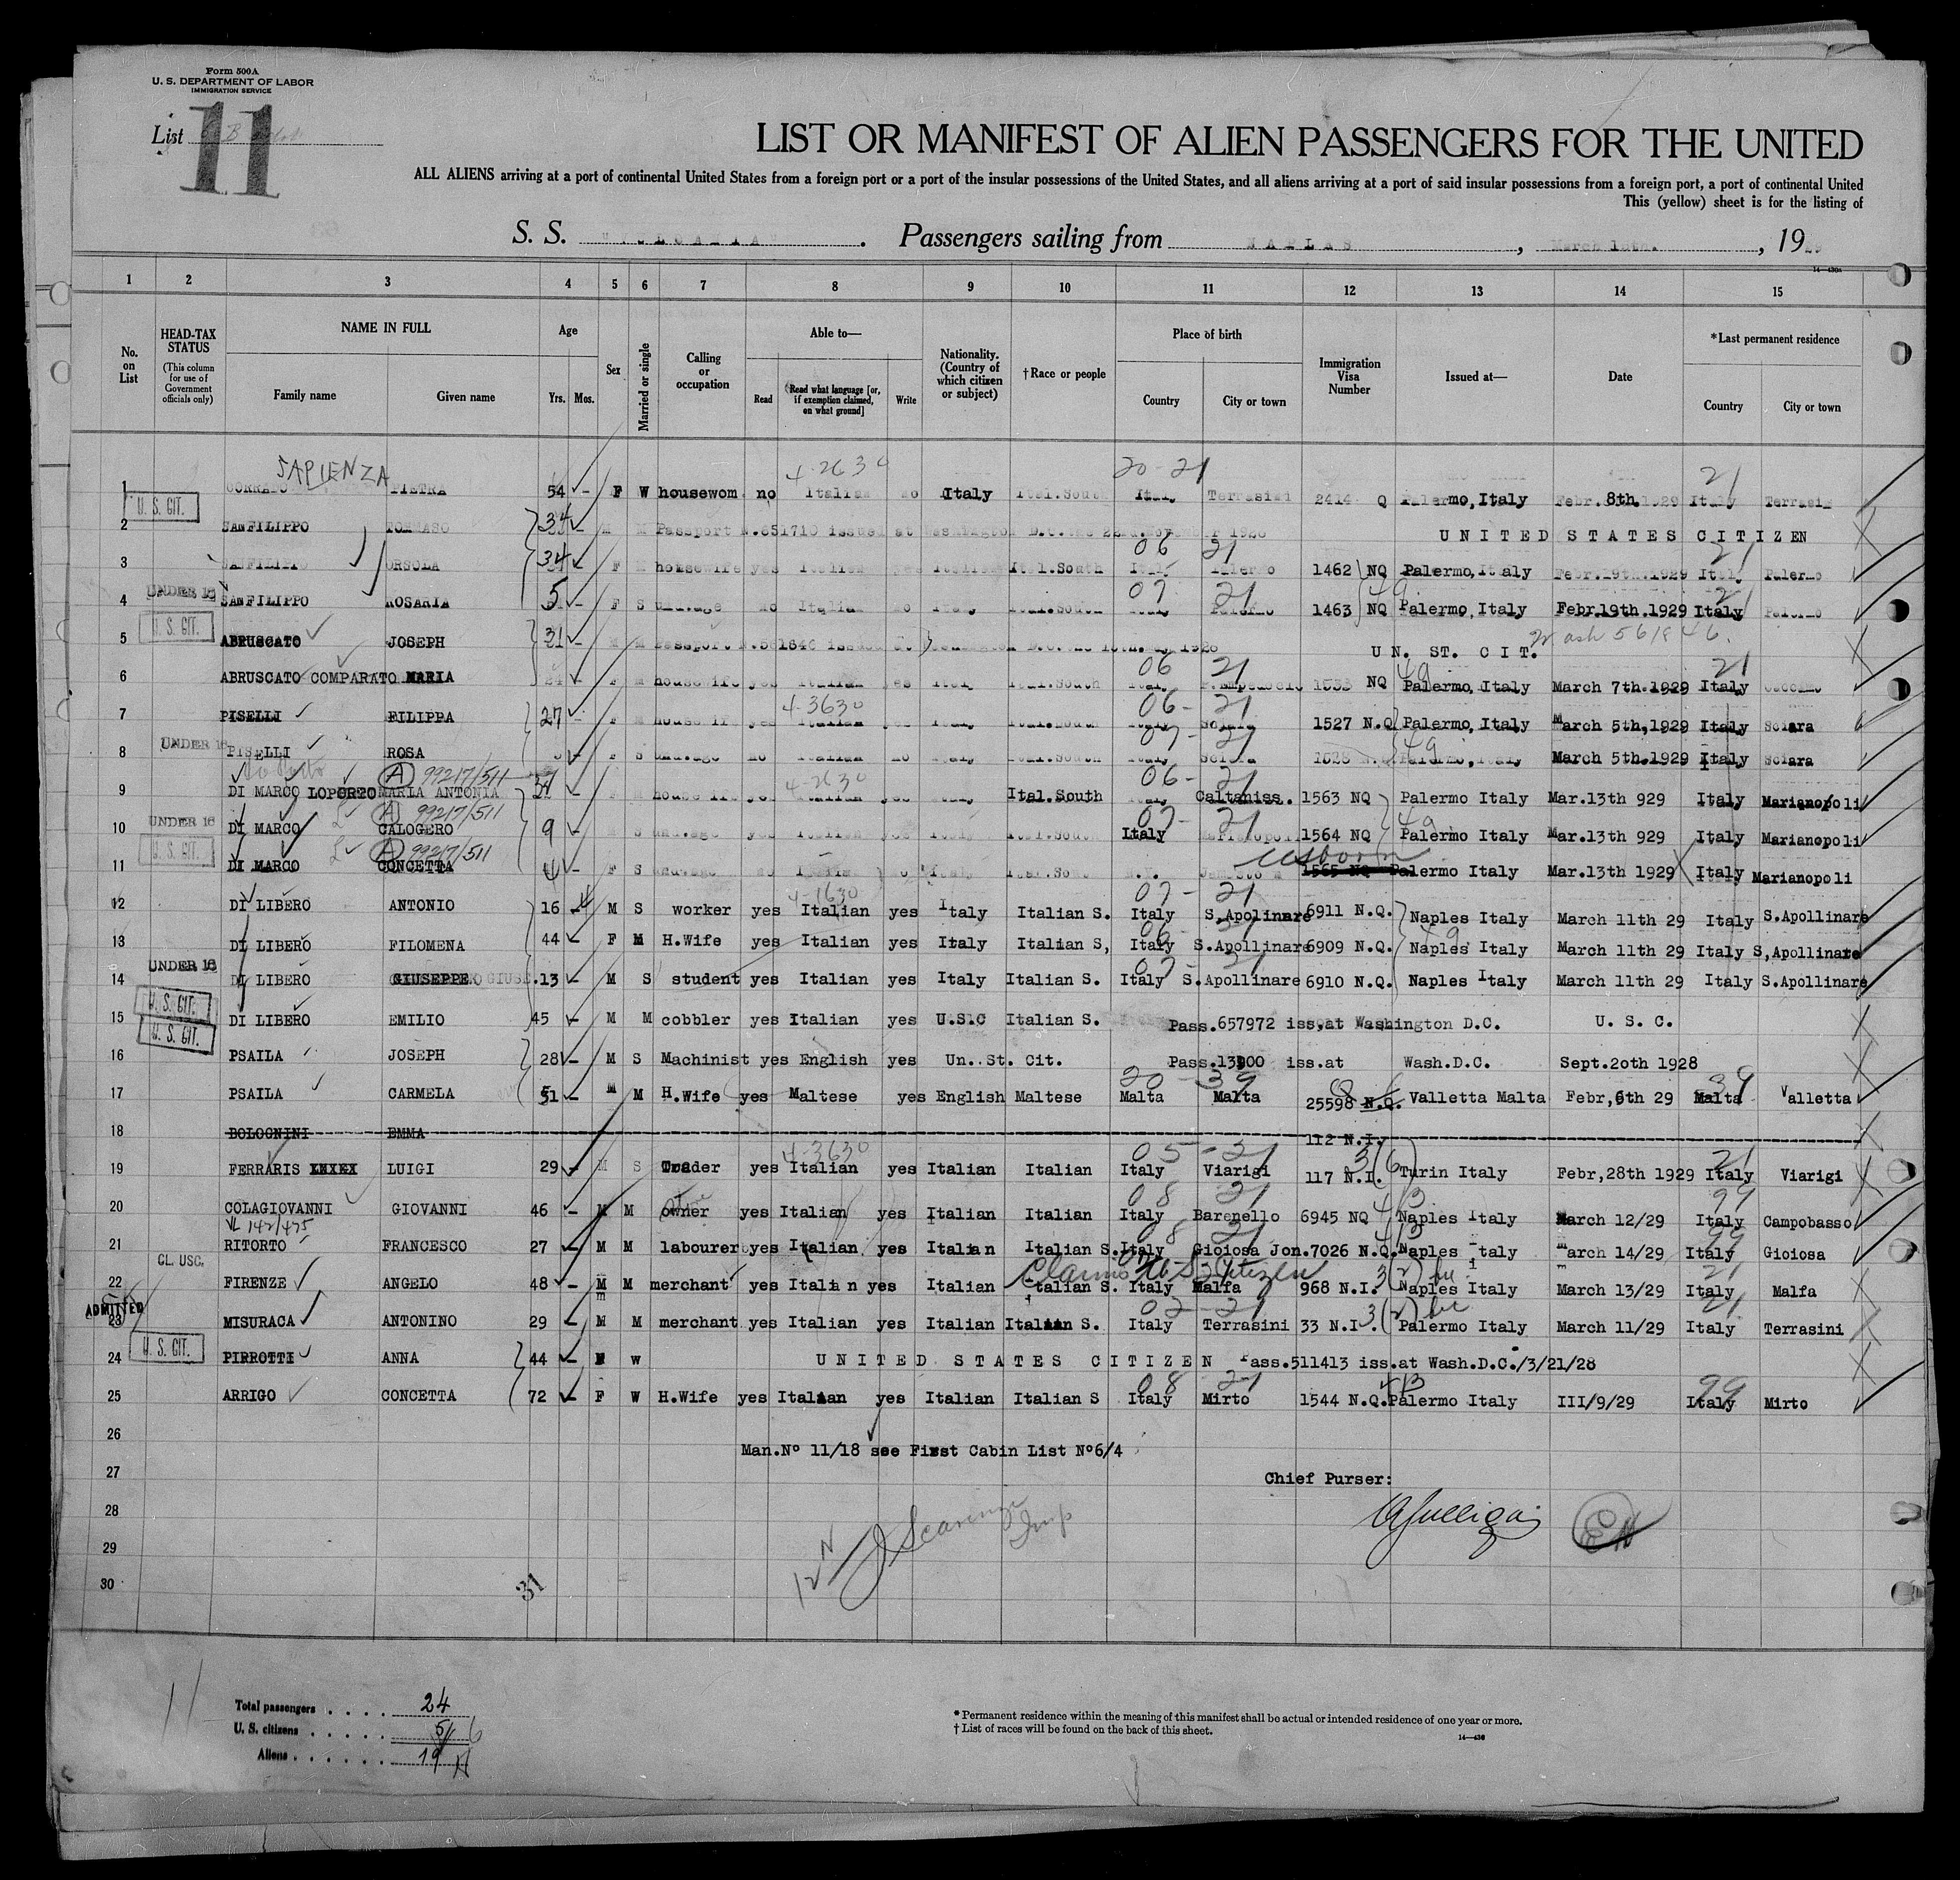 Form 500A
U. S. DEPARTMENT OF LABOR
IMMIGRATION SERVICE
List 11
LIST OR MANIFEST OF ALIEN PASSENGERS FOR THE UNITED
ALL ALIENS arriving at a port of continental United States from a foreign port or a port of the insular possessions of the United States, and all aliens arriving at a port of said insular possessions from a foreign port, a port of continental United
This (yellow) sheet is for the listing of
S. S. . Passengers sailing from NAPLES , March , 19
14—430a
1 2 3 4 5 6 7 8 9 10 11 12 13 14 15
No. on List
HEAD-TAX STATUS
(This column for use of Government officials only)
NAME IN FULL
Family name Given name
Age
Yrs. Mos.
Sex
Married or single
Calling or occupation
Able to—
Read
Read what language [or, if exemption claimed, on what ground]
Write
Nationality. (Country of which citizen or subject)
†Race or people
Place of birth
Country City or town
Immigration Visa Number
Issued at—
Date
*Last permanent residence
Country City or town
SAPIENZA 4-2630 20-21 21
1 PIETRA 54 - F W housewom no Italian no Italy Ital.South Italy Terrasini 2414 Q Palermo, Italy Febr. 8th, 1929 Italy
U. S. CIT.
2 SANFILIPPO TOMMASO 34 M M Passport N.651710 issued at Washington D.C. UNITED STATES CITIZEN
06 21 21
3 SANFILIPPO ORSOLA 34 F M housewife yes Italian yes Italian Ital.South Italy Palermo 1462 NQ Palermo, Italy Febr.19th.1929 Italy Palermo
UNDER 16
07 21 49 21
4 SANFILIPPO ROSARIA 5 F S und.age no Italian no Italy Ital.South Italy Palermo 1463 NQ Palermo, Italy Febr.19th.1929 Italy Palermo
U. S. CIT.
Wash 561846.
5 ABRUSCATO JOSEPH 31 - M M Passport UN. ST. CIT.
06 21 49 21
6 ABRUSCATO COMPARATO MARIA F M housewife yes Italian yes Italy Ital.South Italy P.Empedocle 1533 NQ Palermo, Italy March 7th.1929 Italy
4-3630 06-21
7 PISELLI FILIPPA 27 F M housewife yes Italian Italy Ital.South Italy Sciara 1527 N.Q. Palermo, Italy March 5th,1929 Italy Sciara
UNDER 16
07-21 49
8 PISELLI ROSA - F S und.age no Italian no Italy Ital.South Italy Sciara 1528 N.Q. Palermo, Italy March 5th.1929 Italy Sciara
Lo Porto (A) 99217/511 4-2630 06-21
9 DI MARCO LOPORTO MARIA ANTONIA F M housewife yes Italian yes Italy Ital.South Caltaniss. 1563 NQ Palermo Italy Mar.13th 929 Italy Marianopoli
(A) 99217/511
UNDER 16
07-21 49
10 DI MARCO CALOGERO 9 - S und.age yes Italian yes Italy Ital.South Italy Marianopoli 1564 NQ Palermo Italy Mar.13th 929 Italy Marianopoli
U. S. CIT.
(A) 99217/511
US born
11 DI MARCO CONCETTA 4 - F S und.age no Italian no Italy 1565 NQ Palermo Italy Mar.13th 1929 Italy Marianopoli
4-1630 07-21
12 DI LIBERO ANTONIO 16 M S worker yes Italian yes Italy Italian S. Italy S,Apolinare 6911 N.Q. Naples Italy March 11th 29 Italy S.Apollinare
49
13 DI LIBERO FILOMENA 44 - F M H.Wife yes Italian yes Italy Italian S, Italy S.Apollinare 6909 N.Q. Naples Italy March 11th 29 Italy S,Apollinare
UNDER 16
07-21
14 DI LIBERO GIUSEPPE 13 - M S student yes Italian yes Italy Italian S. Italy S.Apollinare 6910 N.Q. Naples Italy March 11th 29 Italy S.Apollinare
U. S. CIT.
15 DI LIBERO EMILIO 45 - M M cobbler yes Italian yes U.S.C Italian S. Pass.657972 iss,at Washington D.C. U. S. C.
U. S. CIT.
16 PSAILA JOSEPH 28 - M S Machinist yes English yes Un. St. Cit. Pass.13900 iss.at Wash.D.C. Sept.2oth 1928
20-39 39
17 PSAILA CARMELA 51 - M M H.Wife yes Maltese yes English Maltese Malta Malta 25598 N.Q. Q Valletta Malta Febr,6th 29 Malta Valletta
18 BOLOGNINI EMMA 112 N.I.
4-3630 05-21 3(6) 21
19 FERRARIS LUIGI 29 - M S Trader yes Italian yes Italian Italian Italy Viarigi 117 N.I. Turin Italy Febr,28th 1929 Italy Viarigi
08 21 413 99
20 COLAGIOVANNI GIOVANNI 46 - M M owner yes Italian yes Italian Italian Italy Barenello 6945 NQ Naples Italy March 12/29 Italy Campobasso
VL 142/475 08 21 413 99
21 RITORTO FRANCESCO 27 - M M labourer yes Italian yes Italian Italian S. Italy Gioiosa Jon. 7026 N.Q. Naples Italy march 14/29 Italy Gioiosa
CL. USC.
Claims U S Citizen 3(2) 21
22 FIRENZE ANGELO 48 - M M merchant yes Italian yes Italian Italian S. Italy Malfa 968 N.I. Naples Italy March 13/29 Italy Malfa
ADMITTED
02-21 3(2) 21
23 MISURACA ANTONINO 29 - M M merchant yes Italian yes Italian Italian S. Italy Terrasini 33 N.I. Palermo Italy March 11/29 Italy Terrasini
U. S. CIT.
24 PIRROTTI ANNA 44 - W UNITED STATES CITIZEN Pass.511413 iss.at Wash.D.C./3/21/28
08 21 413 99
25 ARRIGO CONCETTA 72 - F W H.Wife yes Italian yes Italian Italian S Italy Mirto 1544 N.Q. Palermo Italy III/9/29 Italy Mirto
26
Man.Nº 11/18 see First Cabin List Nº6/4
27
Chief Purser:
28
29
30
31
11
Total passengers . . . . 24
U. S. citizens . . . . . 6
Aliens . . . . . . 19
* Permanent residence within the meaning of this manifest shall be actual or intended residence of one year or more.
† List of races will be found on the back of this sheet.
14—430